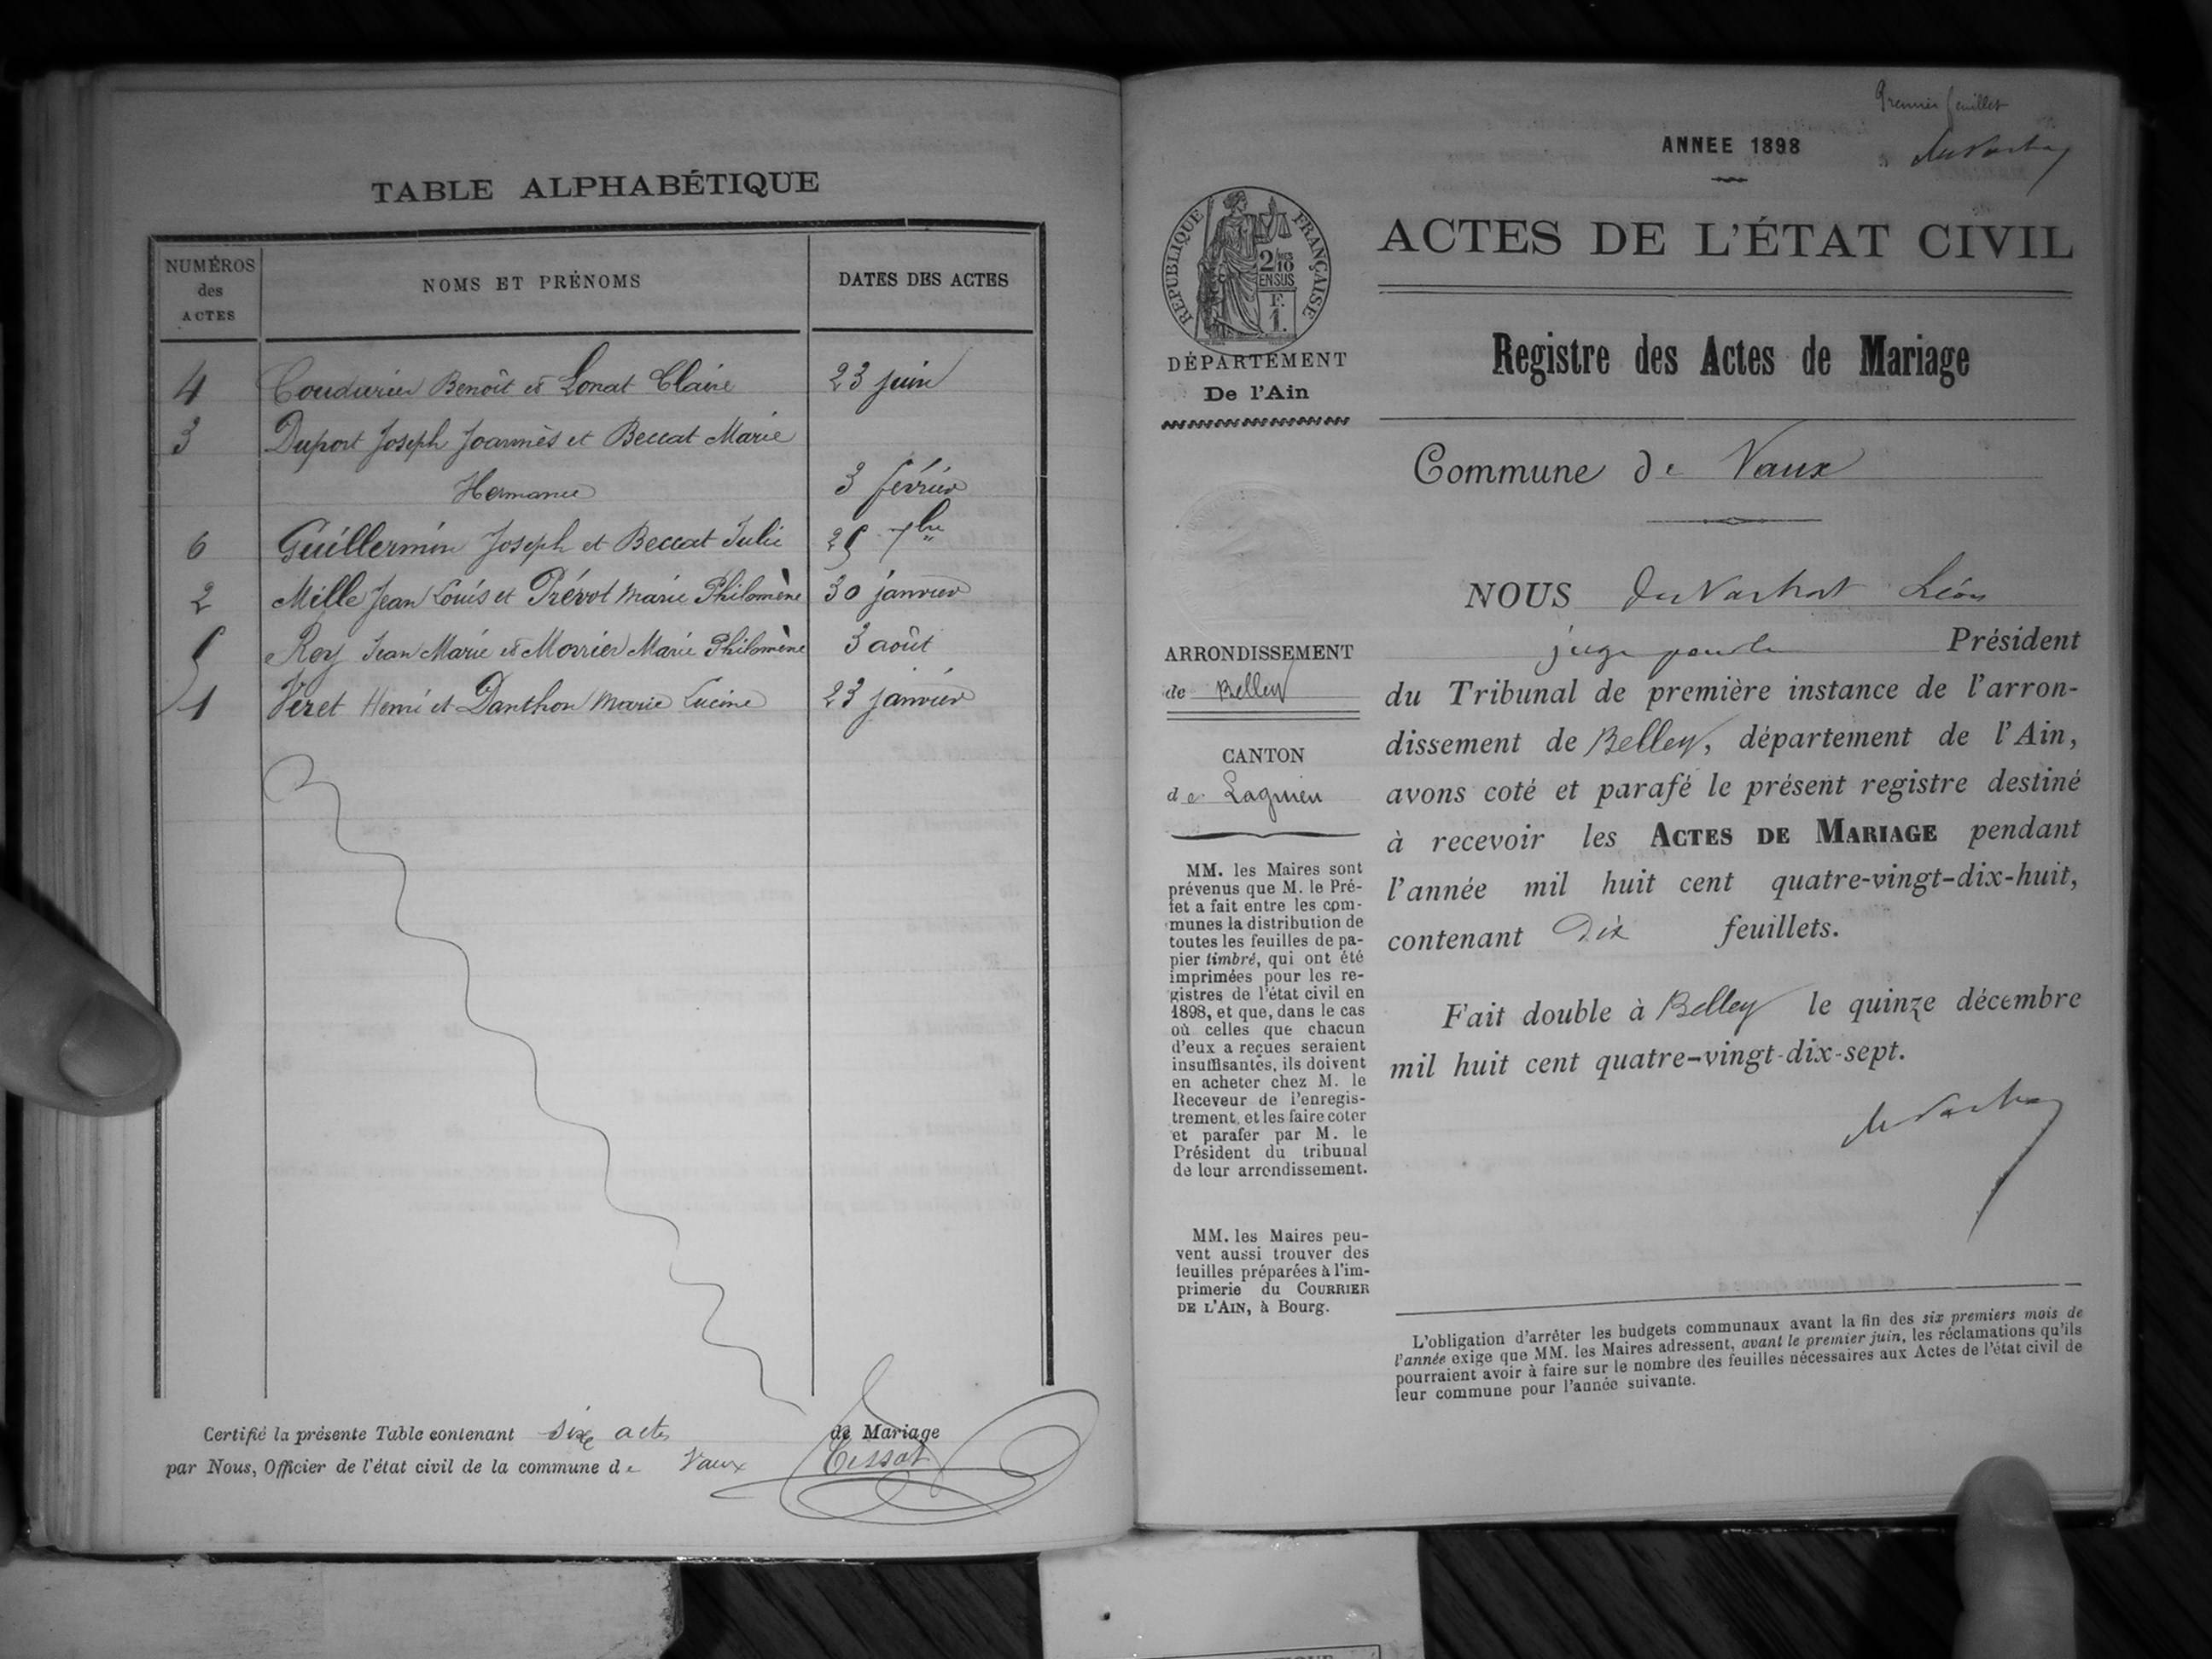 TABLE ALPHABÉTIQUE
NUMÉROS des ACTES
NOMS ET PRÉNOMS
DATES DES ACTES
4 Coudurier Benoît et Lonat Claire 23 juin
3 Duport Joseph Joannès et Beccat Marie
Hermance 3 février
6 Guillermin Joseph et Beccat Julie 25 7bre
2 Mille Jean Louis et Prévot Marie Philomène 30 janvier
5 Rey Jean Marie et Morrier Marie Philomène 3 août
1 Véret Henri et Danthon Marie Lucine 23 janvier
Certifié la présente Table contenant six actes de Mariage
par Nous, Officier de l'état civil de la commune de Vaux
Tissot
Premier feuillet
ANNEE 1898
RÉPUBLIQUE FRANÇAISE
2/10
EN SUS
F.
1.
DÉPARTEMENT
De l'Ain
ARRONDISSEMENT
de Belley
CANTON
de Lagnieu
MM. les Maires sont
prévenus que M. le Pré-
fet a fait entre les com-
munes la distribution de
toutes les feuilles de pa-
pier timbré, qui ont été
imprimées pour les re-
gistres de l'état civil en
1898, et que, dans le cas
où celles que chacun
d'eux a reçues seraient
insuffisantes, ils doivent
en acheter chez M. le
Receveur de l'enregis-
trement, et les faire coter
et parafer par M. le
Président du tribunal
de leur arrondissement.
MM. les Maires peu-
vent aussi trouver des
feuilles préparées à l'im-
primerie du COURRIER
DE L'AIN, à Bourg.
ACTES DE L'ÉTAT CIVIL
Registre des Actes de Mariage
Commune de Vaux
NOUS Léon
juge pour le Président
du Tribunal de première instance de l'arron-
dissement de Belley, département de l'Ain,
avons coté et parafé le présent registre destiné
à recevoir les ACTES DE MARIAGE pendant
l'année mil huit cent quatre-vingt-dix-huit,
contenant Dix feuillets.
Fait double à Belley le quinze décembre
mil huit cent quatre-vingt-dix-sept.
L'obligation d'arrêter les budgets communaux avant la fin des six premiers mois de
l'année exige que MM. les Maires adressent, avant le premier juin, les réclamations qu'ils
pourraient avoir à faire sur le nombre des feuilles nécessaires aux Actes de l'état civil de
leur commune pour l'année suivante.